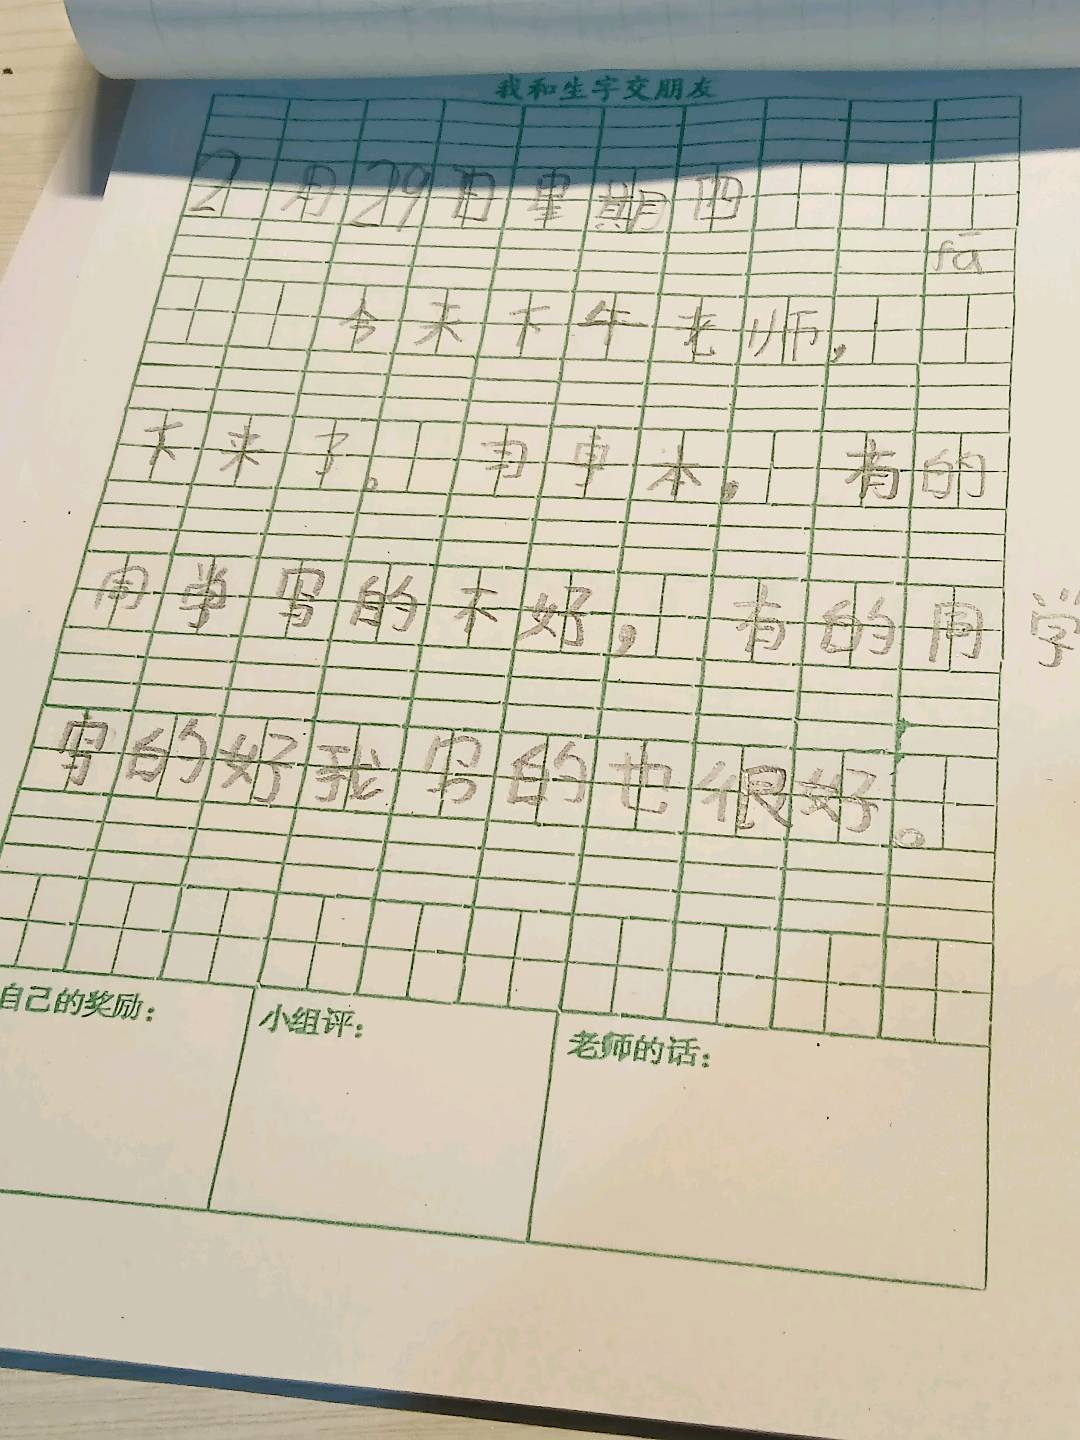 我和生字交朋友
2月29日星期四
fā
今来下午老师,
下来了。习字本,有的
用学写的不好,有的用学
写的好我写的也很好。
自己的奖励:
小组评:
老师的话: